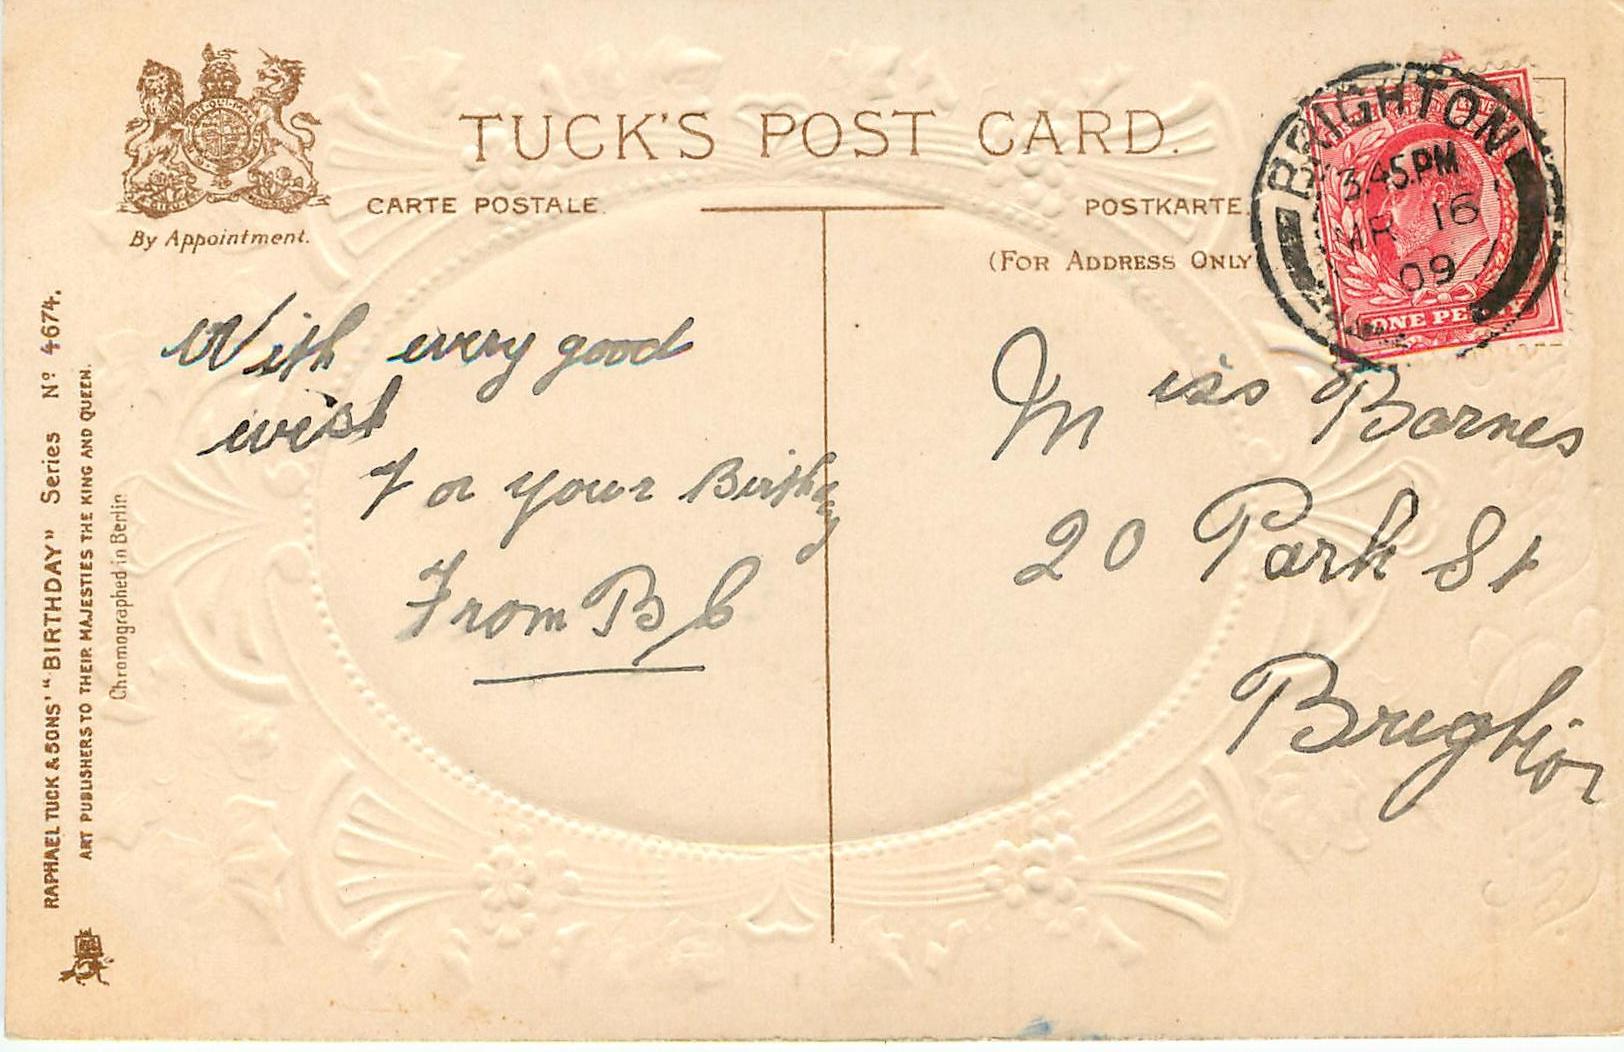 TUCK'S POST CARD.
CARTE POSTALE
POSTKARTE.
By Appointment.
(FOR ADDRESS ONLY
BRIGHTON
3.45.PM
MR 16
09
ONE PE
RAPHAEL TUCK & SONS' "BIRTHDAY" Series Nº 4674.
ART PUBLISHERS TO THEIR MAJESTIES THE KING AND QUEEN.
Chromographed in Berlin
With every good
wish
For your Birthday
From B C
Miss Barnes
20 Park St
Brighton